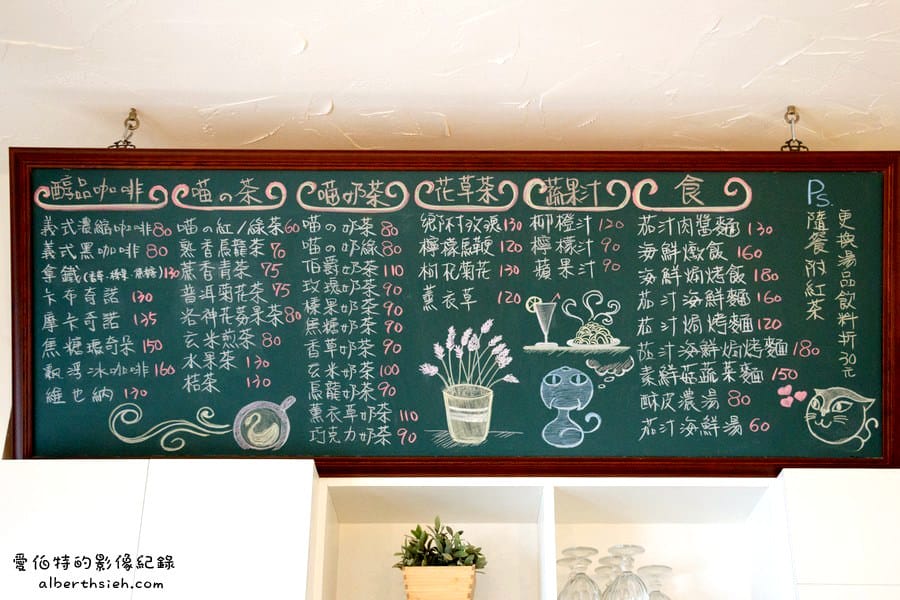 醇品咖啡
義式濃縮咖啡 80
義式黑咖啡 80
拿鐵(香草、榛果、焦糖) 130
卡布奇諾 130
摩卡奇諾 135
焦糖瑪奇朵 150
冰咖啡 160
維也納 130
喵の茶
喵の紅/綠茶 60
熟香烏龍茶 70
蔗香青茶 75
普洱菊花茶 75
洛神花蕩果茶 80
玄米煎茶 80
水果茶 130
桔茶 130
喵の奶茶
喵の奶茶 80
喵の奶綠 80
伯爵奶茶 110
玫瑰奶茶 90
榛果奶茶 90
焦糖奶茶 90
香草奶茶 90
玄米奶茶 100
烏龍奶茶 90
薰衣草奶茶 110
巧克力奶茶 90
花草茶
鄉村玫瑰 130
檸檬馬鞭 120
柑花菊花 130
薰衣草 120
蔬果汁
柳橙汁 120
檸檬汁 90
蘋果汁 90
食
茄汁肉醬麵 130
海鮮燉飯 160
海鮮焗烤飯 180
茄汁海鮮麵 160
茄汁焗烤麵 120
茄汁海鮮焗烤麵 180
素鮮菇蔬菜麵 150
酥皮濃湯 80
茄汁海鮮湯 60
Ps.
隨餐附紅茶
更換湯品飲料折30元
愛伯特的影像紀錄
alberthsieh.com